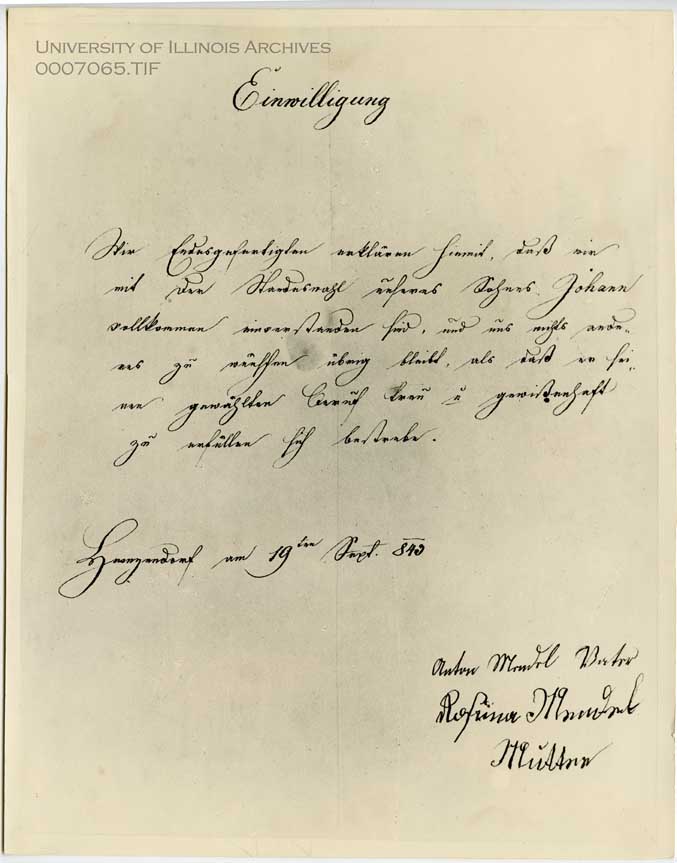 UNIVERSITY OF ILLINOIS ARCHIVES
0007065.TIF
Einwilligung
Wir Endesgefertigten erklären hiemit, daß wir
mit der Standeswahl unseres Sohnes Johann
vollkommen einverstanden sind, und uns nichts ande-
res zu wünschen übrig bleibt, als daß er sei-
nen gewählten Beruf treu u gewissenhaft
zu erfüllen sich bestrebe.
Heinzendorf am 19ten Sept. 843
Anton Mendel Vater
Rosina Mendel
Mutter